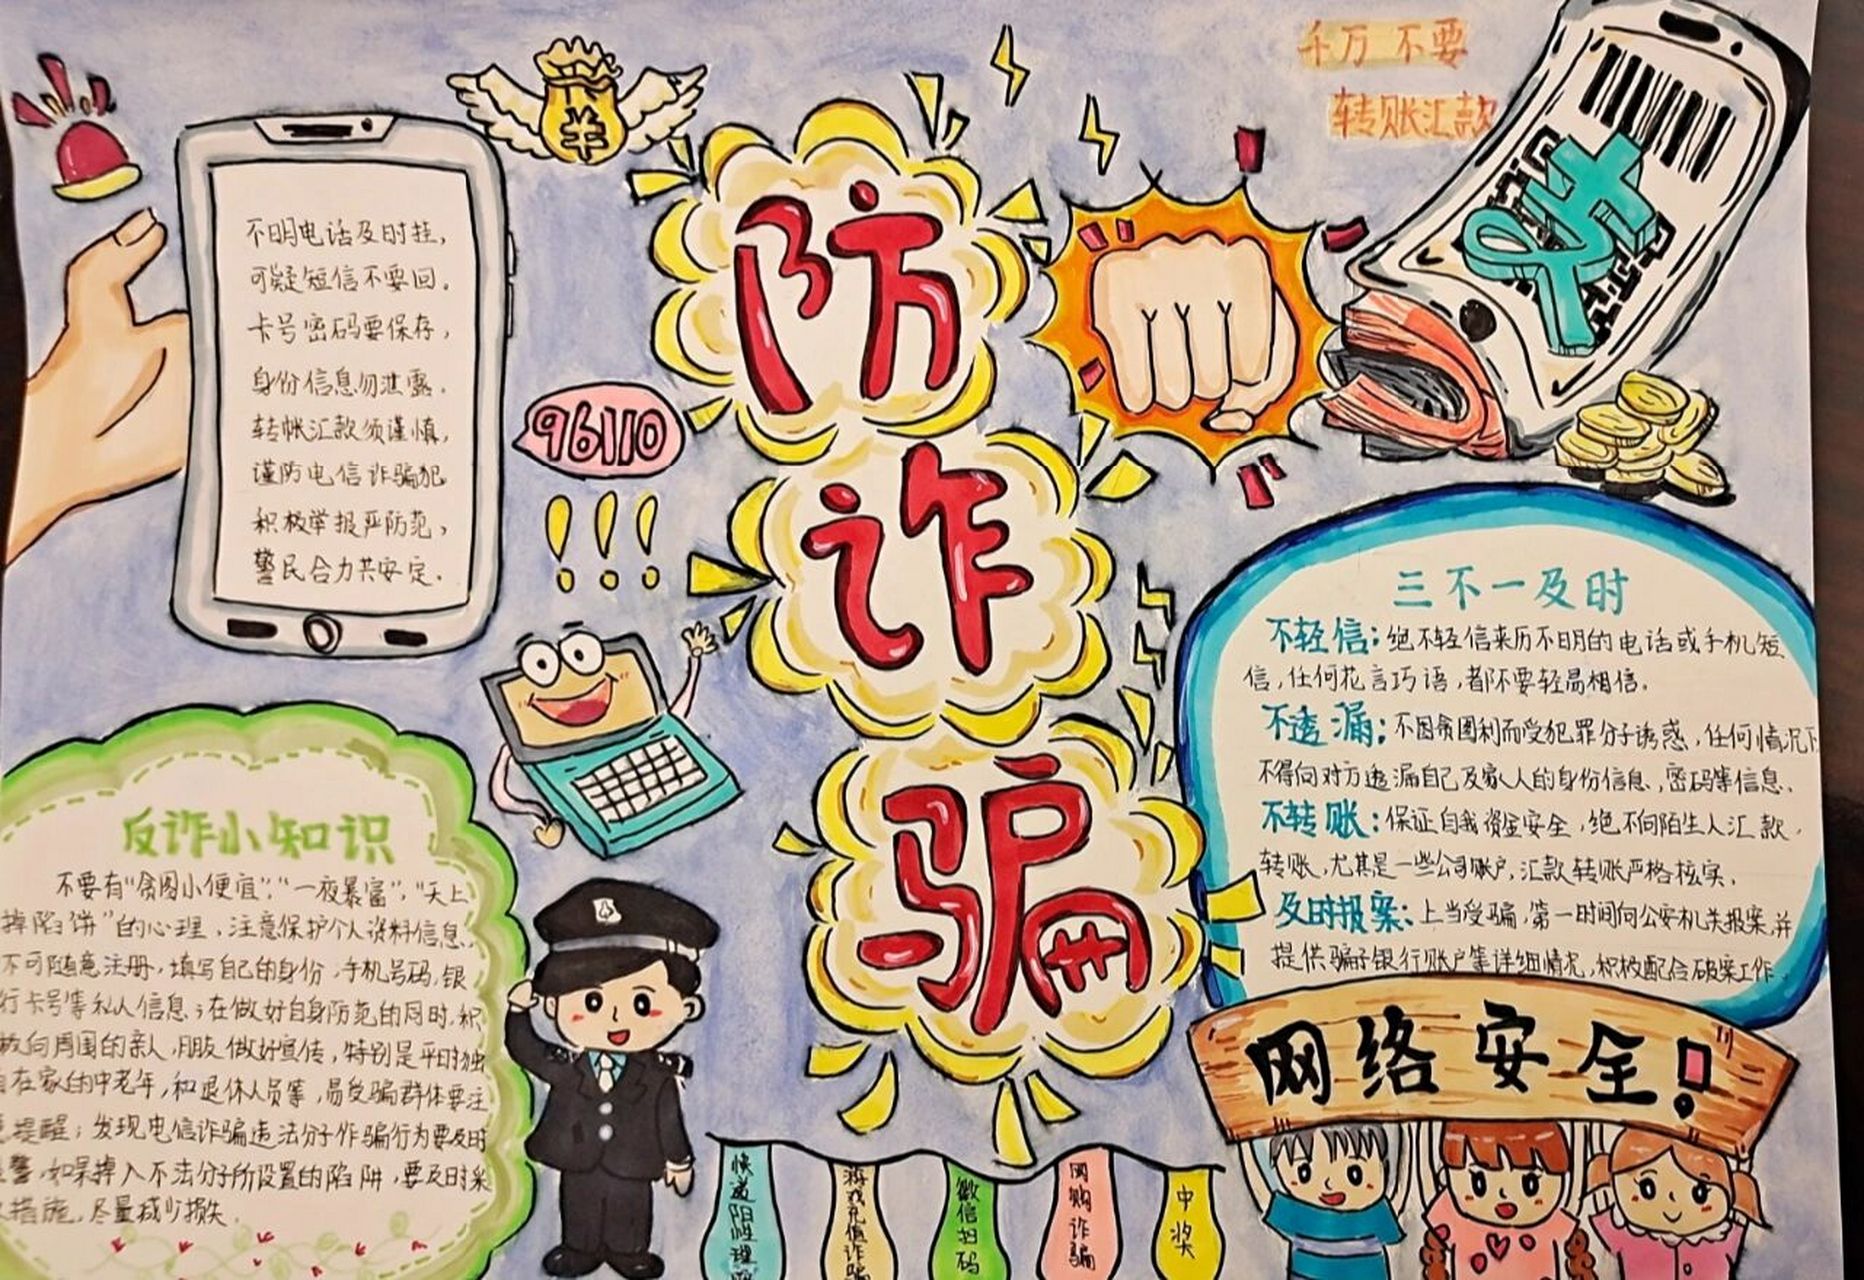 千万不要
转账汇款
¥
防
诈
骗
不明电话及时挂,
可疑短信不要回.
卡号密码要保存,
身份信息勿泄露.
转帐汇款须谨慎,
谨防电信诈骗犯
积极举报严防范,
警民合力共安定.
96110
!!!
三不一及时
不轻信:绝不轻信来历不明的电话或手机短
信,任何花言巧语,都不要轻易相信.
不透漏:不因贪图利而受犯罪分子诱惑,任何情况下
不得向对方透漏自己及家人的身份信息,密码等信息.
不转账:保证自我资金安全,绝不向陌生人汇款,
转账,尤其是一些公司账户,汇款转账严格核实,
及时报案:上当受骗,第一时间向公安机关报案,并
提供骗子银行账户等详细情况,积极配合破案工作.
反诈小知识
不要有“贪图小便宜”,“一夜暴富”,“天上
掉陷饼”的心理,注意保护个人资料信息,
不可随意注册,填写自己的身份,手机号码,银
行卡号等私人信息;在做好自身防范的同时,积
极向周围的亲人,朋友做好宣传,特别是平时独
自在家的中老年,和退休人员等,易受骗群体要注
提醒;发现电信诈骗违法分子作骗行为要及时
警,如果掉入不法分子所设置的陷阱,要及时采
措施,尽量减少损失.
网络安全!
快递阳性理
游戏充值诈骗
微信扫码
网购诈骗
中奖